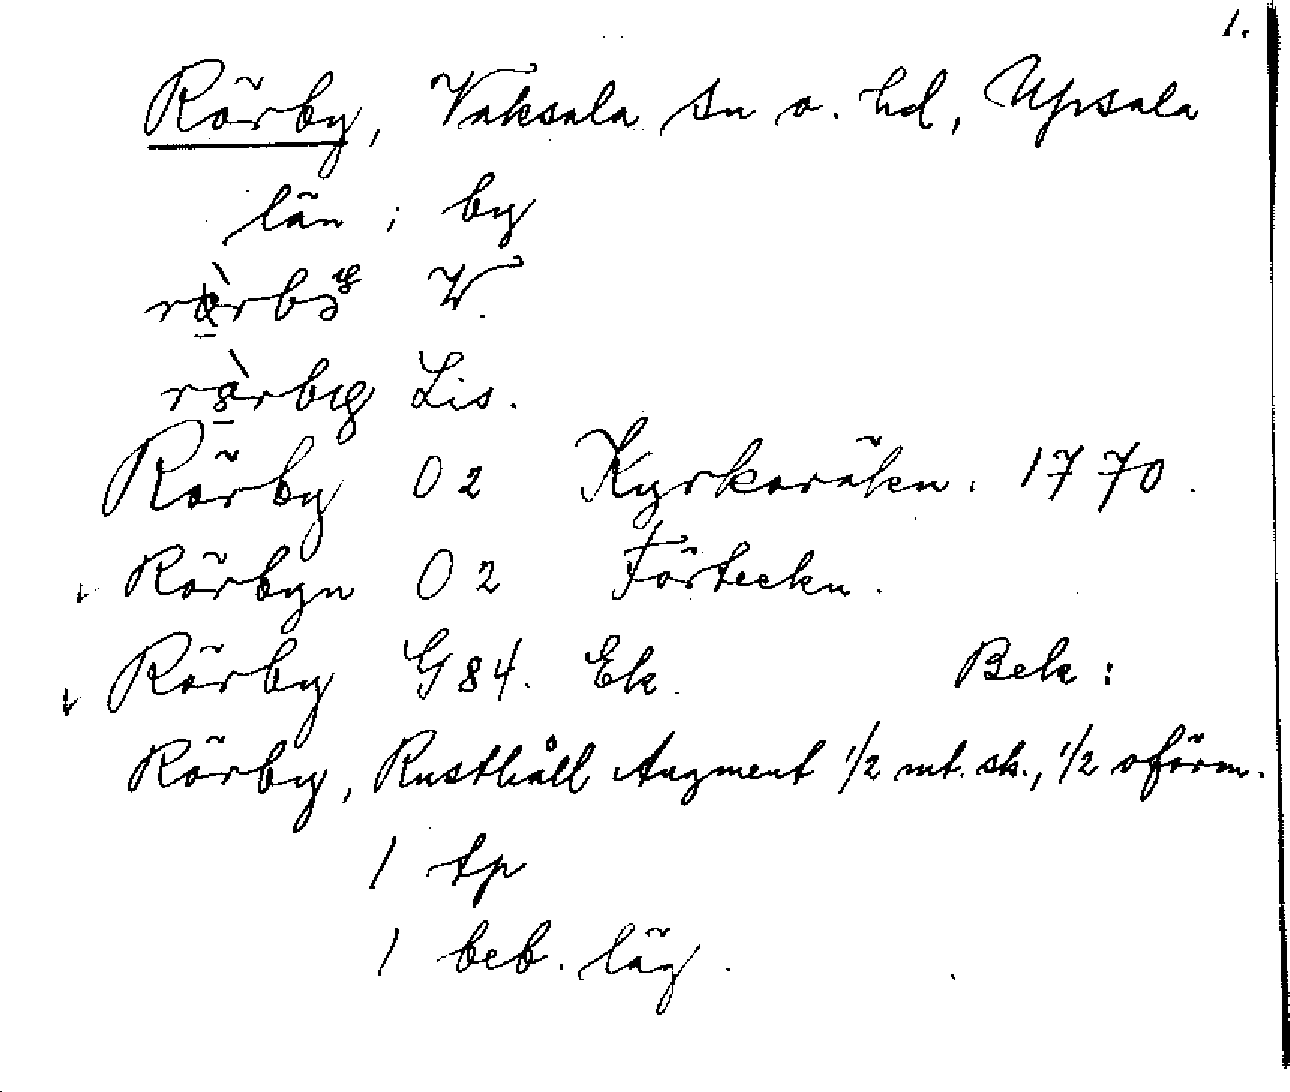 1.
Rörby, Vaksala sn o. hd, Upsala
län; by
V.
Lis.
Rörby 02 Kyrkoräkn. 1770.
Rörbyn 02 Förteckn.
Rörby G84. Ek. Bek:
Rörby, Rusthåll Augment 1/2 mt. sk., 1/2 oförm.
1 tp
1 beb. läg.